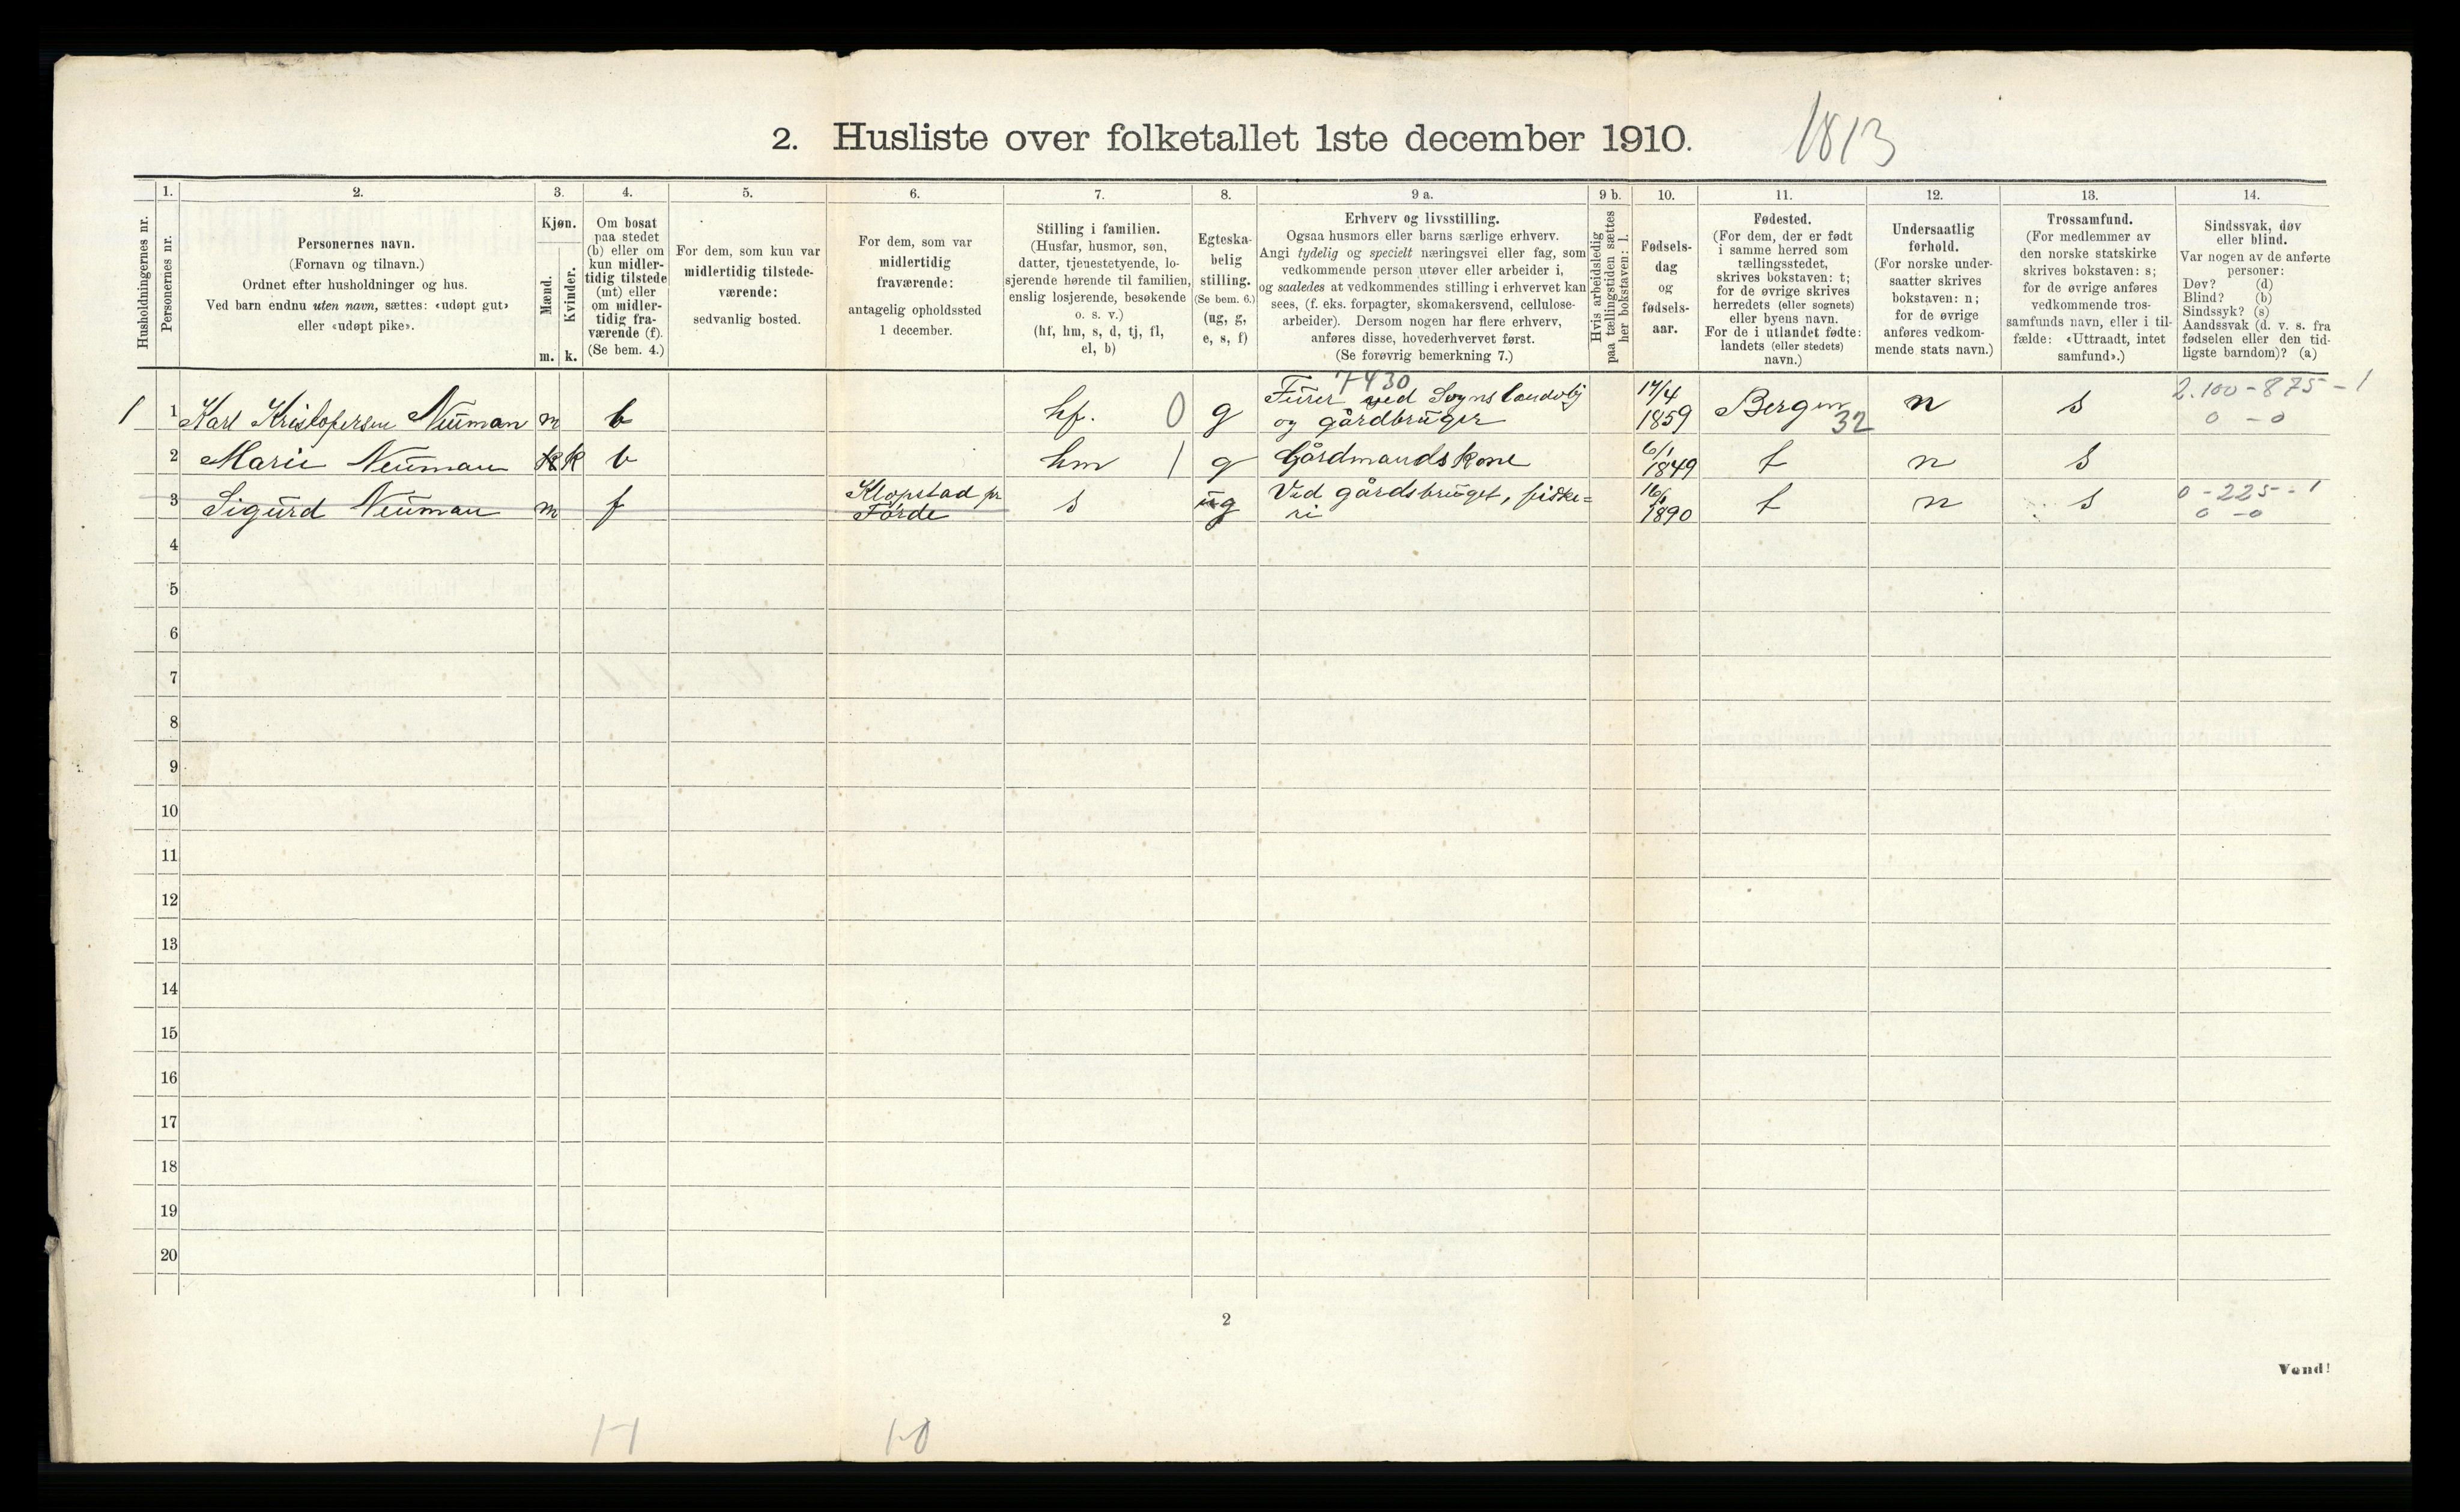 2. Husliste over folketallet 1ste december 1910.
1813
Husholdningernes nr.
1.
Personernes nr.
2.
Personernes navn.
(Fornavn og tilnavn.)
Ordnet efter husholdninger og hus.
Ved barn endnu uten navn, sættes: «udøpt gut»
eller «udøpt pike».
3.
Kjøn.
Mænd.
Kvinder.
m.
k.
4.
Om bosat
paa stedet
(b) eller om
kun midler-
tidig tilstede
(mt) eller
om midler-
tidig fra-
værende (f).
(Se bem. 4.)
5.
For dem, som kun var
midlertidig tilstede-
værende:
sedvanlig bosted.
6.
For dem, som var
midlertidig
fraværende:
antagelig opholdssted
1 december.
7.
Stilling i familien.
(Husfar, husmor, søn,
datter, tjenestetyende, lo-
sjerende hørende til familien,
enslig losjerende, besøkende
o. s. v.)
(hf, hm, s, d, tj, fl,
el, b)
8.
Egteska-
belig
stilling.
(Se bem. 6.)
(ug, g,
e, s, f)
9 a.
Erhverv og livsstilling.
Ogsaa husmors eller barns særlige erhverv.
Angi tydelig og specielt næringsvei eller fag, som
vedkommende person utøver eller arbeider i,
og saaledes at vedkommendes stilling i erhvervet kan
sees, (f. eks. forpagter, skomakersvend, cellulose-
arbeider). Dersom nogen har flere erhverv,
anføres disse, hovederhvervet først.
(Se forøvrig bemerkning 7.)
9 b.
Hvis arbeidsledig
paa tællingstiden sættes
her bokstaven: l.
10.
Fødsels-
dag
og
fødsels-
aar.
11.
Fødested.
(For dem, der er født
i samme herred som
tællingsstedet,
skrives bokstaven: t;
for de øvrige skrives
herredets (eller sognets)
eller byens navn.
For de i utlandet fødte:
landets (eller stedets)
navn.)
12.
Undersaatlig
forhold.
(For norske under-
saatter skrives
bokstaven: n;
for de øvrige
anføres vedkom-
mende stats navn.)
13.
Trossamfund.
(For medlemmer av
den norske statskirke
skrives bokstaven: s;
for de øvrige anføres
vedkommende tros-
samfunds navn, eller i til-
fælde: «Uttraadt, intet
samfund».)
14.
Sindssvak, døv
eller blind.
Var nogen av de anførte
personer:
Døv? (d)
Blind? (b)
Sindssyk? (s)
Aandssvak (d. v. s. fra
fødselen eller den tid-
ligste barndom)? (a)
7430
1 1 Karl Kristofersen Neuman m b hf. 0 g Fürer ved Sogns landvbg 17/4 Bergen n s 2.100-875-1
og gårdbruger 1859 32 0 - 0
2 Marie Neuman k k b hm 1 g Gårdmandskone 6/1 1849 t n s
3 Sigurd Neuman m f Klopstad pr s ug Ved gårdsbruget, fiske= 16/1 t n s 0-225-1
Førde ri 1890 0 -0
4
5
6
7
8
9
10
11
12
13
14
15
16
17
18
19
20
2
Vend!
1-1
1-0